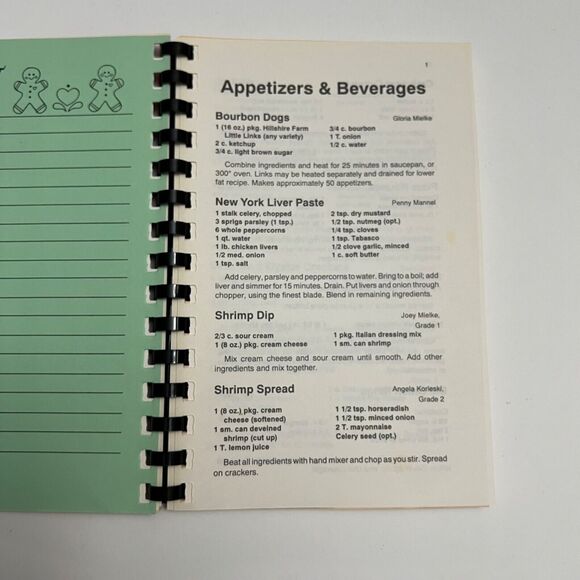 1
Appetizers & Beverages
Bourbon Dogs Gloria Mielke
1 (16 oz.) pkg. Hillshire Farm 3/4 c. bourbon
Little Links (any variety) 1 T. onion
2 c. ketchup 1/2 c. water
3/4 c. light brown sugar
Combine ingredients and heat for 25 minutes in saucepan, or
300° oven. Links may be heated separately and drained for lower
fat recipe. Makes approximately 50 appetizers.
New York Liver Paste Penny Mannel
1 stalk celery, chopped 2 tsp. dry mustard
3 sprigs parsley (1 tsp.) 1/2 tsp. nutmeg (opt.)
6 whole peppercorns 1/4 tsp. cloves
1 qt. water 1 tsp. Tabasco
1 lb. chicken livers 1/2 clove garlic, minced
1/2 med. onion 1 c. soft butter
1 tsp. salt
Add celery, parsley and peppercorns to water. Bring to a boil; add
liver and simmer for 15 minutes. Drain. Put livers and onion through
chopper, using the finest blade. Blend in remaining ingredients.
Shrimp Dip Joey Mielke,
Grade 1
2/3 c. sour cream 1 pkg. Italian dressing mix
1 (8 oz.) pkg. cream cheese 1 sm. can shrimp
Mix cream cheese and sour cream until smooth. Add other
ingredients and mix together.
Shrimp Spread Angela Korleski,
Grade 2
1 (8 oz.) pkg. cream 1 1/2 tsp. horseradish
cheese (softened) 1 1/2 tsp. minced onion
1 sm. can deveined 2 T. mayonnaise
shrimp (cut up) Celery seed (opt.)
1 T. lemon juice
Beat all ingredients with hand mixer and chop as you stir. Spread
on crackers.